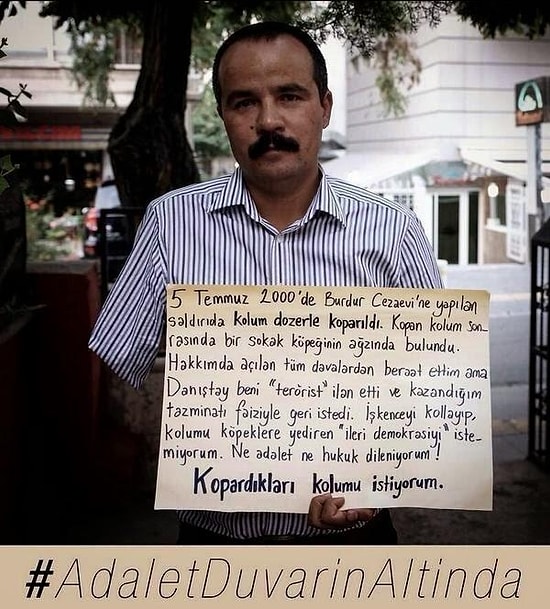 5 Temmuz 2000'de Burdur Cezaevi'ne yapılan
saldırıda kolum dozerle koparıldı. Kopan kolum son-
rasında bir sokak köpeğinin ağzında bulundu.
Hakkımda açılan tüm davalardan beraat ettim ama
Danıştay beni "terörist" ilan etti ve kazandığım
tazminatı faiziyle geri istedi. İşkenceyi kollayıp,
kolumu köpeklere yediren "ileri demokrasiyi" iste-
miyorum. Ne adalet ne hukuk dileniyorum!
Kopardıkları kolumu istiyorum.
#AdaletDuvarinAltinda